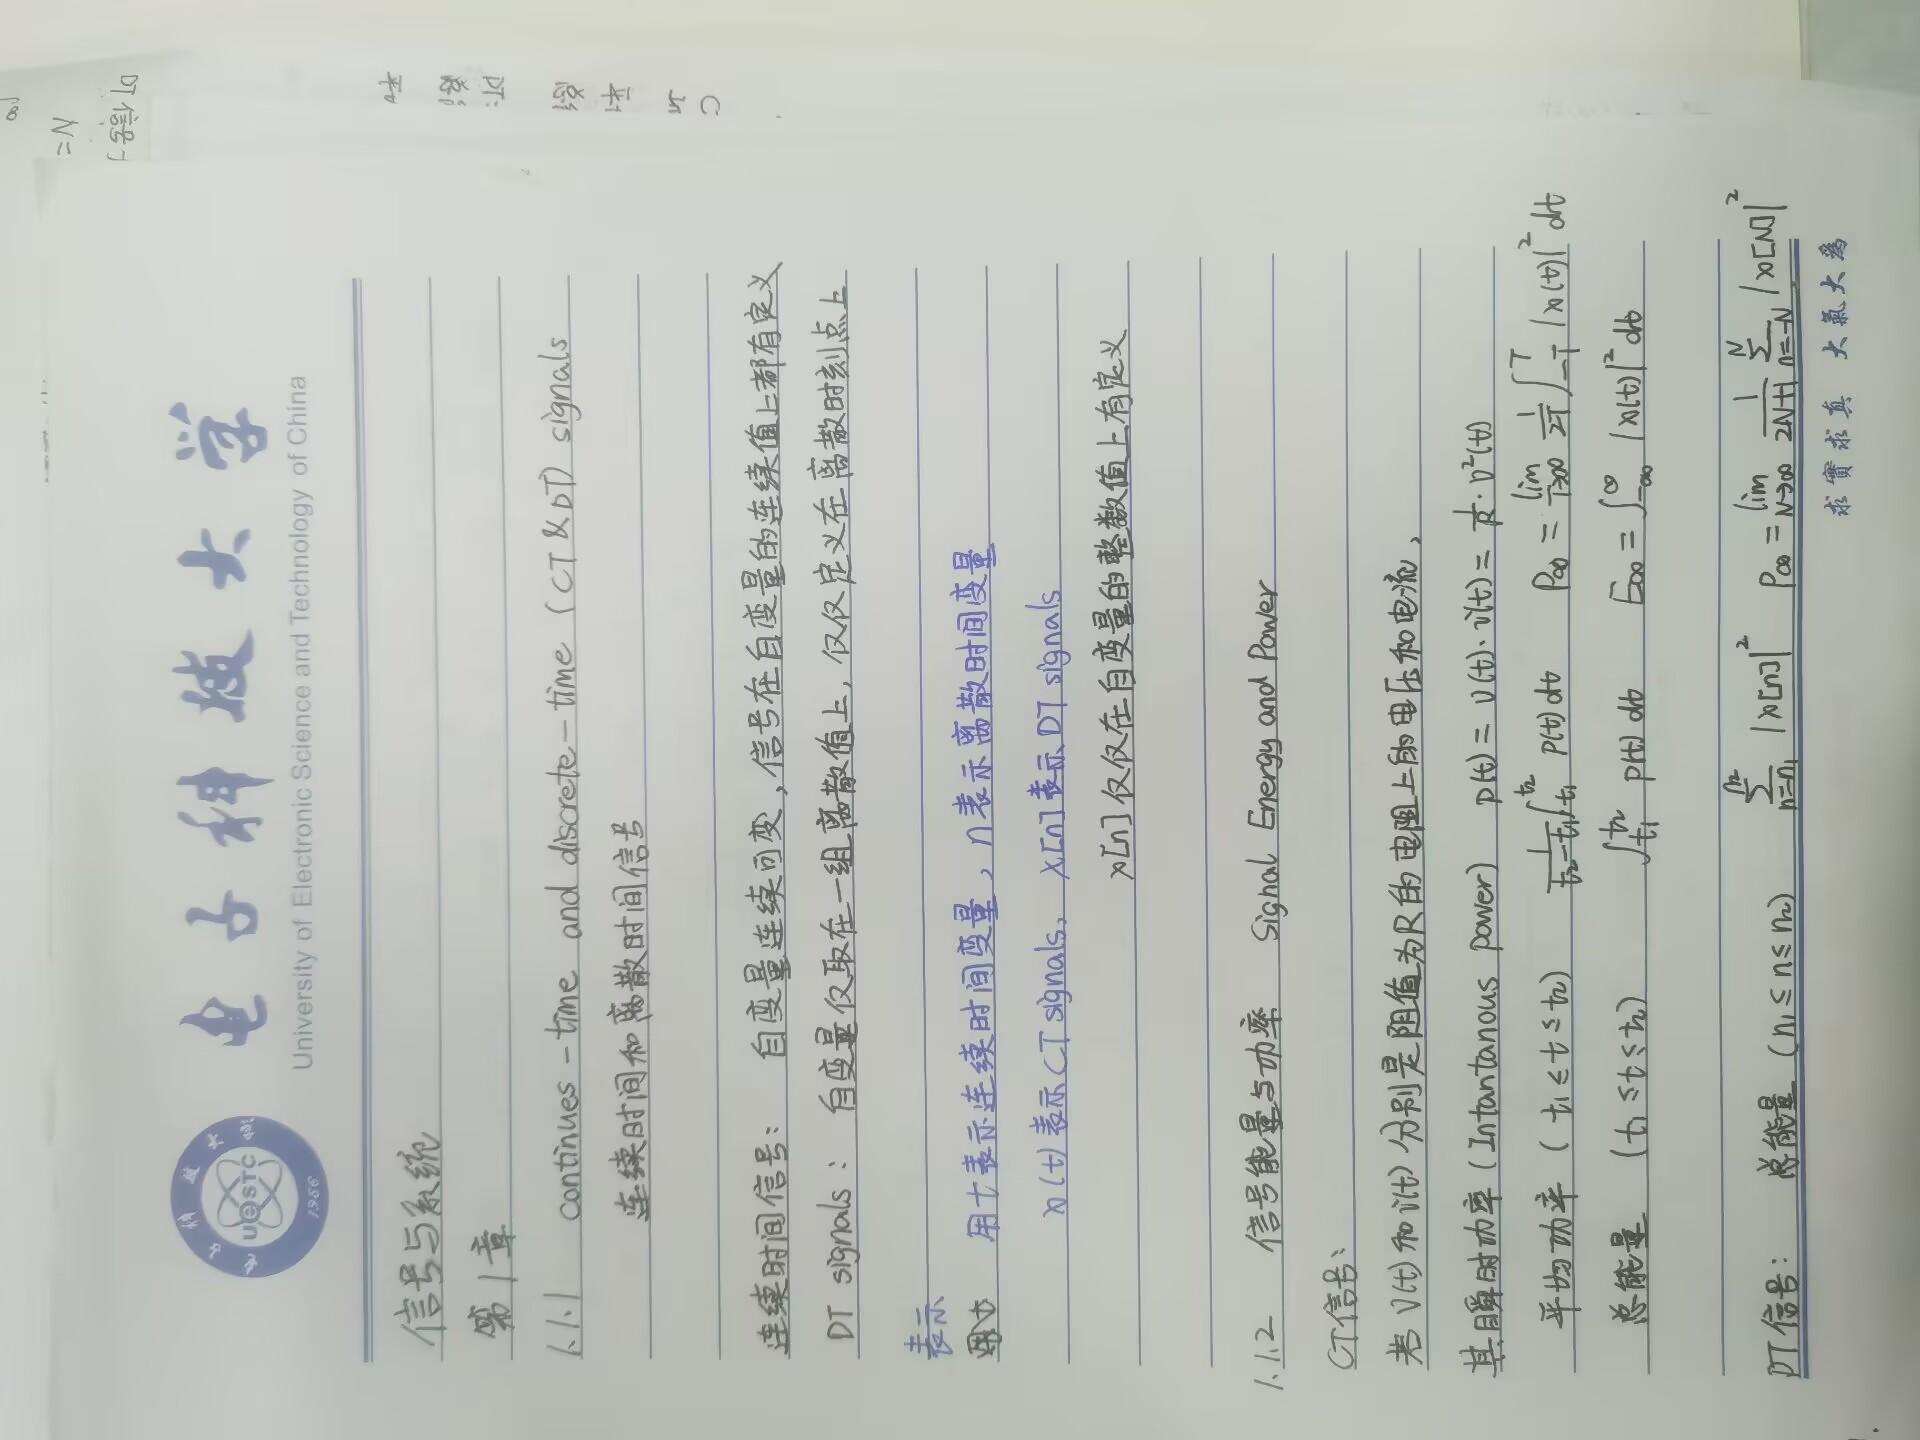 电子科技大学
University of Electronic Science and Technology of China
UESTC
1956
信号与系统
第1章
1.1.1 continues-time and discrete-time (CT & DT) signals
连续时间和离散时间信号
连续时间信号: 自变量连续可变,信号在自变量的连续值上都有定义
DT signals: 自变量仅取在一组离散值上,仅仅定义在离散时刻点上
表示
用t表示连续时间变量,n表示离散时间变量
x(t)表示CT signals, x[n]表示DT signals
x[n]仅仅在自变量的整数值上有定义
1.1.2 信号能量与功率 Signal Energy and Power
CT信号:
若 v(t) 和 i(t) 分别是阻值为R的电阻上的电压和电流,
其瞬时功率 (Intantanous power) p(t) = v(t)·i(t) = 1/R · v²(t)
平均功率 (t₁ ≤ t ≤ t₂) 1/(t₂-t₁) ∫_{t₁}^{t₂} p(t) dt P∞ = lim_{T→∞} 1/2T ∫_{-T}^{T} |x(t)|² dt
总能量 (t₁ ≤ t ≤ t₂) ∫_{t₁}^{t₂} p(t) dt E∞ = ∫_{-∞}^{∞} |x(t)|² dt
DT信号: 总能量 (n₁ ≤ n ≤ n₂) Σ_{n=n₁}^{n₂} |x[n]|² P∞ = lim_{N→∞} 1/(2N+1) Σ_{n=-N}^{N} |x[N]|²
求實求真 大氣大為